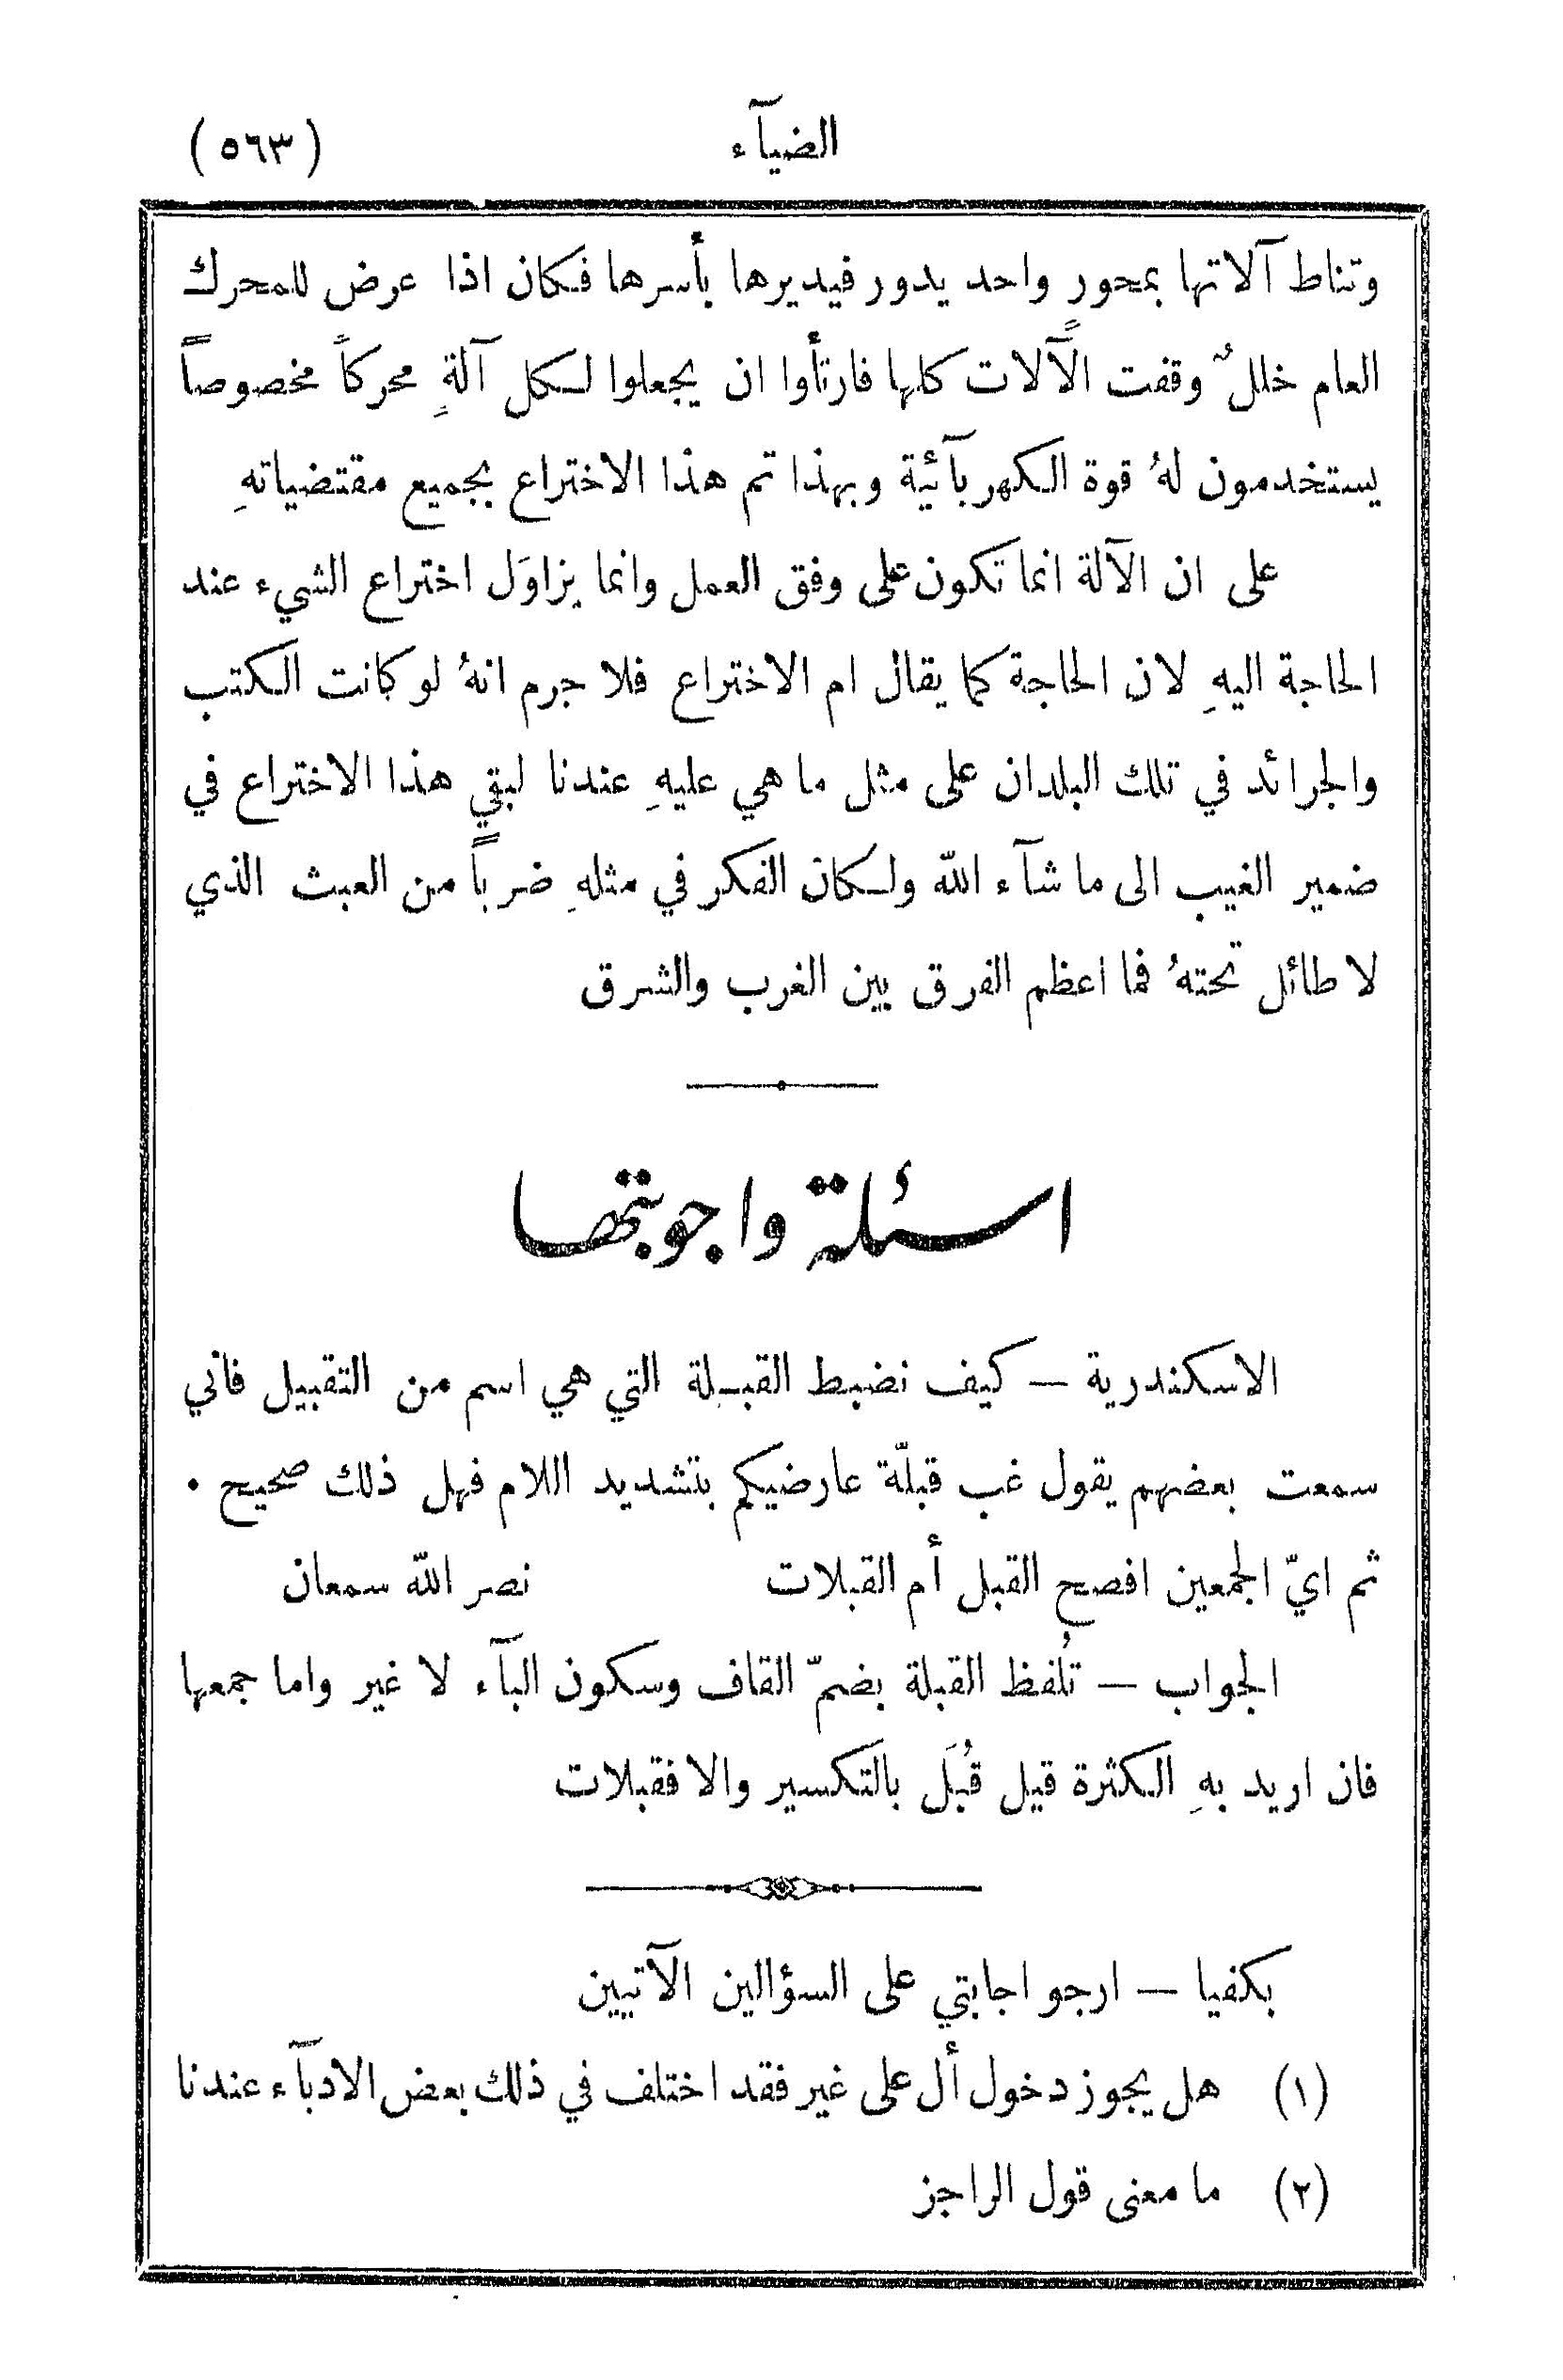 الضيآء (٥٦٣)
وتناط آلاتها بمحور واحد يدور فيديرها بأسرها فكان اذا عرض للمحرك
العام خللٌ وقفت الآلات كلها فارتأوا ان يجعلوا لكل آلةٍ محركاً مخصوصاً
يستخدمون لهُ قوة الكهربآئية وبهذا تم هذا الاختراع بجميع مقتضياتهِ
على ان الآلة انما تكون على وفق العمل وانما يزاوَل اختراع الشيء عند
الحاجة اليهِ لان الحاجة كما يقال ام الاختراع فلا جرم انهُ لو كانت الكتب
والجرائد في تلك البلدان على مثل ما هي عليهِ عندنا لبقي هذا الاختراع في
ضمير الغيب الى ما شآء الله ولكان الفكر في مثلهِ ضرباً من العبث الذي
لا طائل تحتهُ فما اعظم الفرق بين الغرب والشرق
اسئلة واجوبتها
الاسكندرية — كيف نضبط القبلة التي هي اسم من التقبيل فاني
سمعت بعضهم يقول غب قبلّة عارضيكم بتشديد اللام فهل ذلك صحيح ٠
ثم ايّ الجمعين افصح القبل أم القبلات نصر الله سمعان
الجواب — تُلفظ القبلة بضمّ القاف وسكون البآء لا غير واما جمعها
فان اريد بهِ الكثرة قيل قُبَل بالتكسير والا فقبلات
بكفيا — ارجو اجابتي على السؤالين الآتيين
(١) هل يجوز دخول أل على غير فقد اختلف في ذلك بعض الادبآء عندنا
(٢) ما معنى قول الراجز